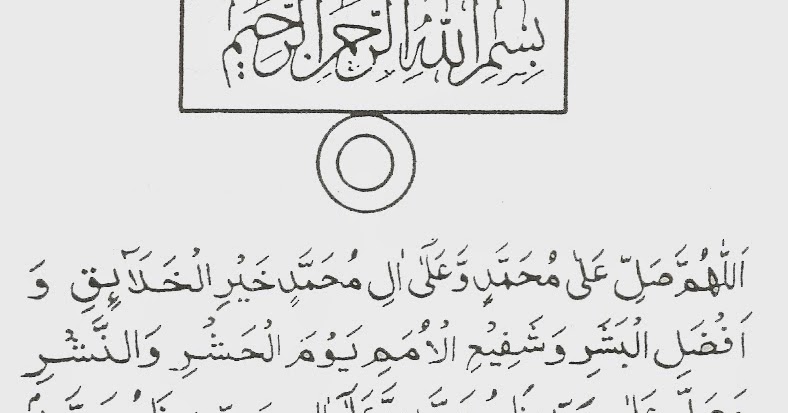 بِسْمِ اللهِ الرَّحْمٰنِ الرَّحِيْمِ
اَللّٰهُمَّ صَلِّ عَلٰى مُحَمَّدٍ وَّعَلٰٓى اٰلِ مُحَمَّدٍ خَيْرِ الْخَلَآئِقِ وَ
اَفْضَلِ الْبَشَرِ وَشَفِيْعِ الْاُمَمِ يَوْمَ الْحَشْرِ وَالنَّشْرِ